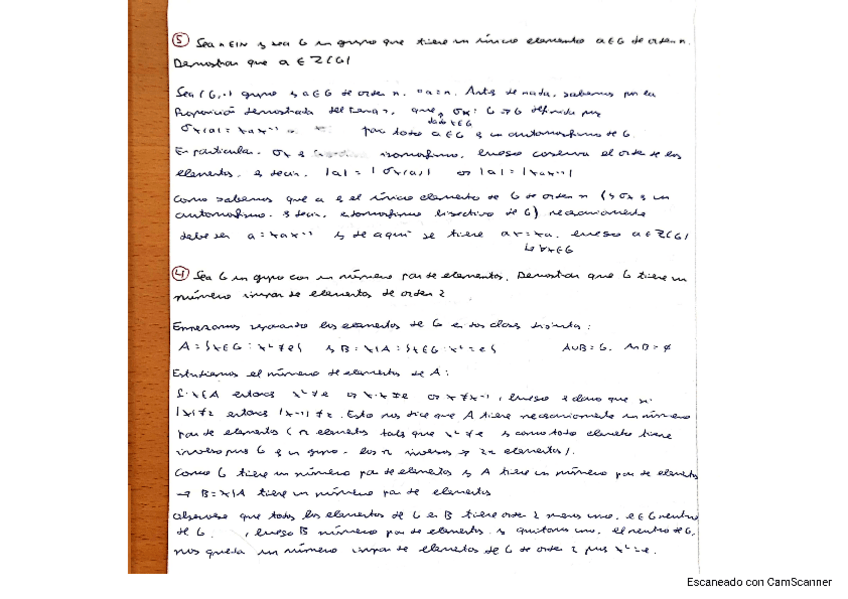 5 Sea n ∈ IN y sea G un grupo que tiene un único elemento a ∈ G de orden n.
Demostrar que a ∈ Z(G)
Sea (G,·) grupo y a ∈ G de orden n. Antes de nada, sabemos por la
Proposición demostrada del tema, que σx: G → G definida por
dado x ∈ G
σx(a) = xax⁻¹ para todo a ∈ G es un automorfismo de G.
En particular σx es isomorfismo, luego conserva el orden de los
elementos, es decir, |a| = |σx(a)| |a| = |xax⁻¹|
Como sabemos que a es el único elemento de G de orden n (y σx es un
automorfismo, es decir, endomorfismo biyectivo de G) necesariamente
debe ser a = xax⁻¹ y de aquí se tiene ax = xa, luego a ∈ Z(G)
∀x ∈ G
4 Sea G un grupo con un número par de elementos. Demostrar que G tiene un
número impar de elementos de orden 2
Empezamos separando los elementos de G en dos clases distintas:
A = {x ∈ G : x² ≠ e} y B = X\A = {x ∈ G : x² = e} A∪B = G. A∩B = ∅
Estudiamos el número de elementos de A:
Si x ∈ A entonces x² ≠ e x·x ≠ e x ≠ x⁻¹, luego es claro que si
|x| ≠ 2 entonces |x⁻¹| ≠ 2. Esto nos dice que A tiene necesariamente un número
par de elementos (n elementos tales que x² ≠ e y como todo elemento tiene
inverso pues G es un grupo, los n inversos → 2n elementos).
Como G tiene un número par de elementos y A tiene un número par de elementos
→ B = X\A tiene un número par de elementos
Obsérvese que todos los elementos de G en B tiene orden 2 menos uno, e ∈ G neutro
de G. , luego B número par de elementos y quitamos uno, el neutro de G,
nos queda un número impar de elementos de G de orden 2 pues x² = e.
Escaneado con CamScanner